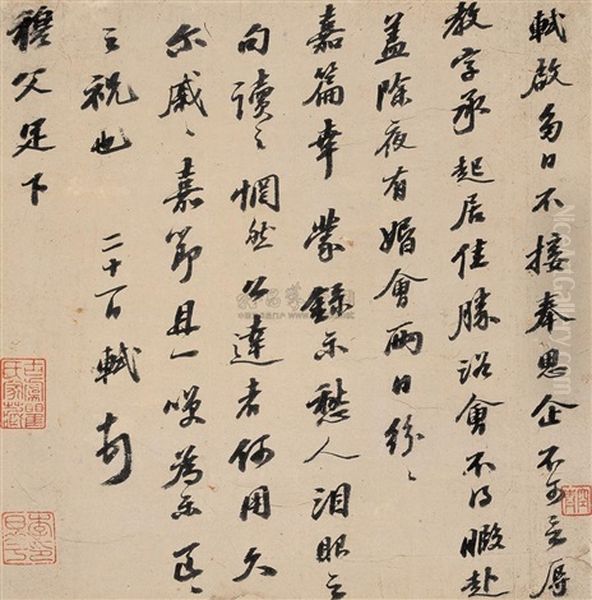 軾啟多日不接奉思企不可言辱
教字承起居佳勝沿會不得暇赴
蓋除夜有婚會兩日紛〻
嘉篇幸蒙錄示愁人淚眼之
句讀之惘然公達者何用久
爾戚〻嘉節且一笑為樂區〻
之祝也 二十一日軾頓首
穆父足下
NiceArtGallery.com